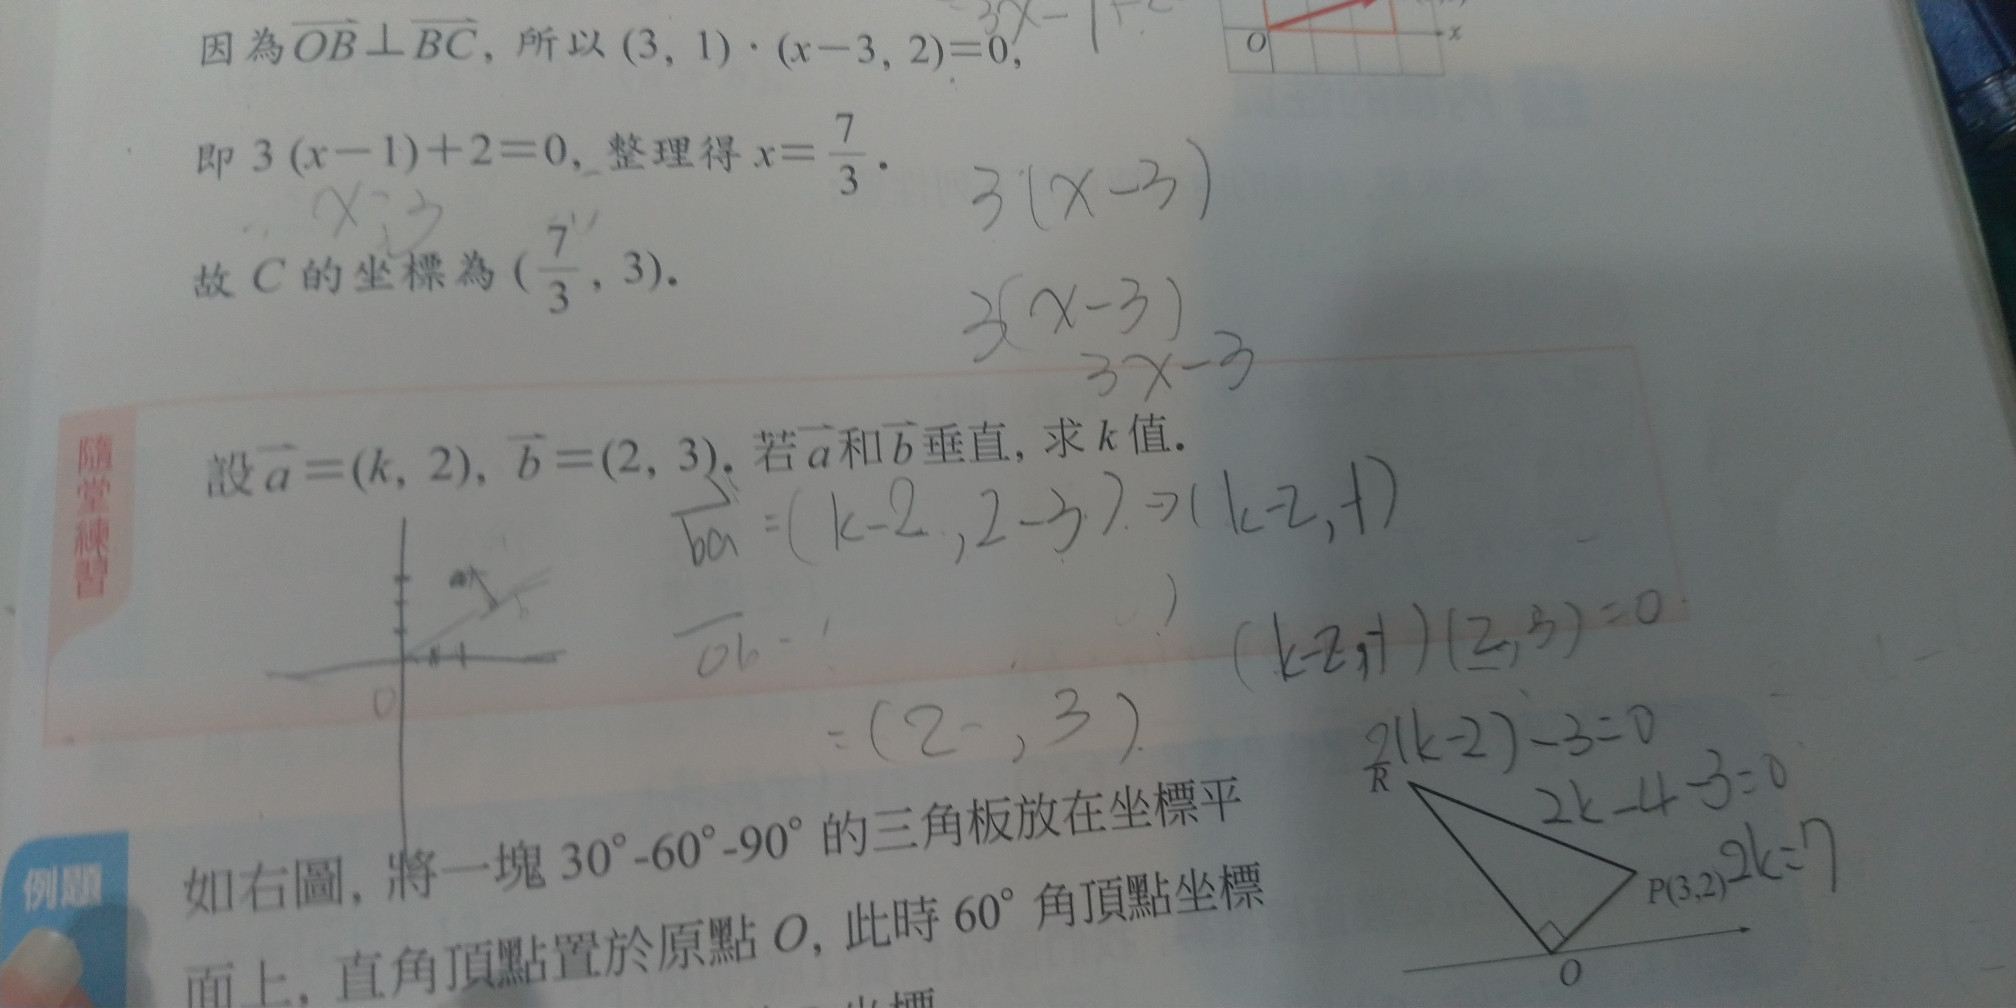 3x-1+2
O x
因為OB⊥BC, 所以 (3, 1)·(x-3, 2)=0,
即 3 (x-1)+2=0, 整理得 x=7/3.
x=3
3(x-3)
故 C 的坐標為 (7/3, 3).
3(x-3)
3x-3
隨堂練習
設a=(k, 2), b=(2, 3). 若a和b垂直, 求k值.
ba=(k-2, 2-3)⇒(k-2, -1)
a
ob=
(k-2, -1)(2, 3)=0
O
=(2-, 3)
2(k-2)-3=0
2k-4-3=0
2k=7
例題
如右圖, 將一塊 30°-60°-90° 的三角板放在坐標平
面上, 直角頂點置於原點 O, 此時 60° 角頂點坐標
R
P(3,2)
O
坐標